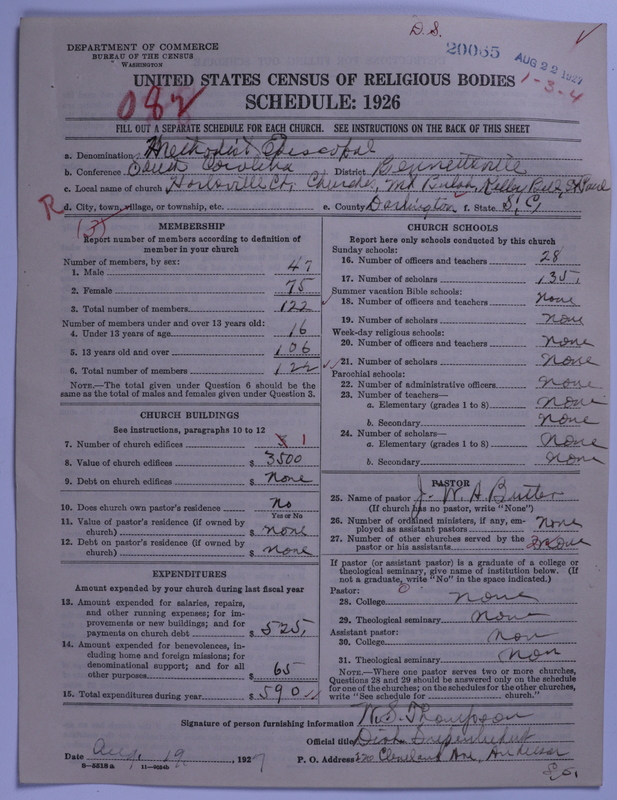 D.S.
DEPARTMENT OF COMMERCE
BUREAU OF THE CENSUS
WASHINGTON
20065
AUG 22 1927
1-3-4
UNITED STATES CENSUS OF RELIGIOUS BODIES
SCHEDULE: 1926
082
FILL OUT A SEPARATE SCHEDULE FOR EACH CHURCH. SEE INSTRUCTIONS ON THE BACK OF THIS SHEET
a. Denomination Methodist Episcopal
b. Conference South Carolina District Bennettsville
c. Local name of church Hartsville Ct. Churches, Mt Beulah, Kelley Bell, St Paul
R d. City, town, village, or township, etc. e. County Darlington f. State S.C.
(3)
MEMBERSHIP
Report number of members according to definition of
member in your church
Number of members, by sex:
1. Male 47
2. Female 75
3. Total number of members 122
Number of members under and over 13 years old:
4. Under 13 years of age 16
5. 13 years old and over 106
6. Total number of members 122
NOTE.—The total given under Question 6 should be the
same as the total of males and females given under Question 3.
CHURCH BUILDINGS
See instructions, paragraphs 10 to 12
7. Number of church edifices 1
8. Value of church edifices $ 3500
9. Debt on church edifices $ None
10. Does church own pastor's residence No
Yes or No
11. Value of pastor's residence (if owned by
church) $ None
12. Debt on pastor's residence (if owned by
church) $ None
EXPENDITURES
Amount expended by your church during last fiscal year
13. Amount expended for salaries, repairs,
and other running expenses; for im-
provements or new buildings; and for
payments on church debt $ 525,
14. Amount expended for benevolences, in-
cluding home and foreign missions; for
denominational support; and for all
other purposes $ 65
15. Total expenditures during year $ 590
CHURCH SCHOOLS
Report here only schools conducted by this church
Sunday schools:
16. Number of officers and teachers 28
17. Number of scholars 135,
Summer vacation Bible schools:
18. Number of officers and teachers None
19. Number of scholars None
Week-day religious schools:
20. Number of officers and teachers None
21. Number of scholars None
Parochial schools:
22. Number of administrative officers None
23. Number of teachers—
a. Elementary (grades 1 to 8) None
b. Secondary None
24. Number of scholars—
a. Elementary (grades 1 to 8) None
b. Secondary None
PASTOR
25. Name of pastor J. W. A. Butler
(If church has no pastor, write "None")
26. Number of ordained ministers, if any, em-
ployed as assistant pastors None
27. Number of other churches served by the
pastor or his assistants 2 None
If pastor (or assistant pastor) is a graduate of a college or
theological seminary, give name of institution below. (If
not a graduate, write "No" in the space indicated.)
Pastor:
28. College None
29. Theological seminary None
Assistant pastor:
30. College Non
31. Theological seminary Non
NOTE.—Where one pastor serves two or more churches,
Questions 28 and 29 should be answered only on the schedule
for one of the churches; on the schedules for the other churches,
write "See schedule for church."
Signature of person furnishing information W. S. Thompson
Official title Dist. Superintendent
Date Aug. 19, 1927 P. O. Address 220 Cleveland Ave, Anderson
S.C.
8-5518 a 11-9254b